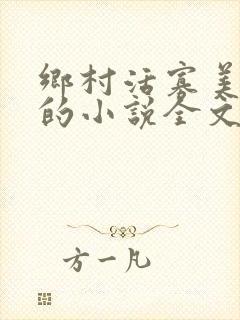 鄉村活寡美
的小說全文
方一凡